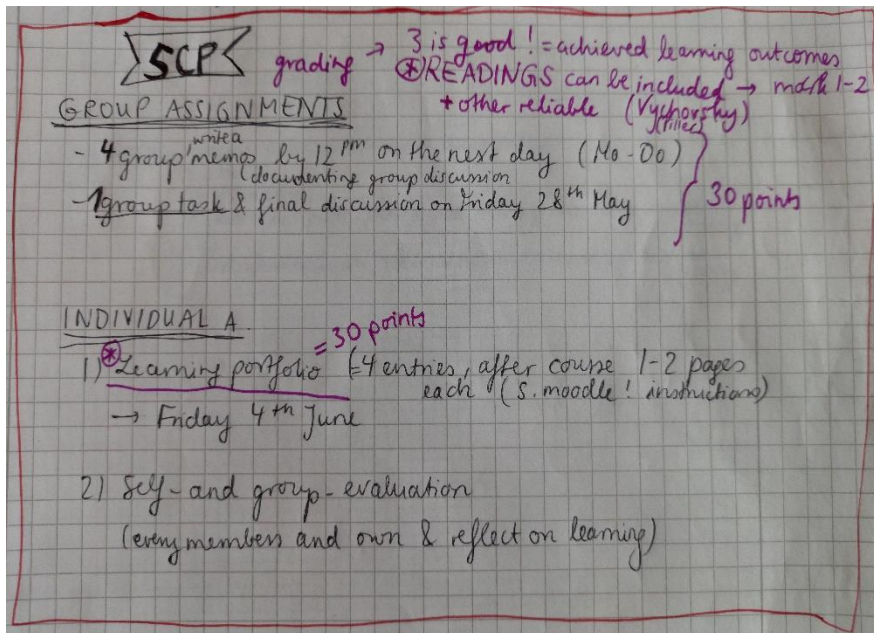 SCP grading → 3 is good! = achieved learning outcomes
⊛READINGS can be included → mark 1-2
+ other reliable
GROUP ASSIGNMENTS
- 4 group memos, by 12 pm on the next day (Mo-Do)
write a
(documenting group discussion
- 1 group task & final discussion on Friday 28th May
30 points
INDIVIDUAL A.
= 30 points
1) ⊛Learning portfolio (=4 entries, after course 1-2 pages
each (s. moodle! instructions)
→ Friday 4th June
2) Self- and group-evaluation
(every members and own & reflect on learning)